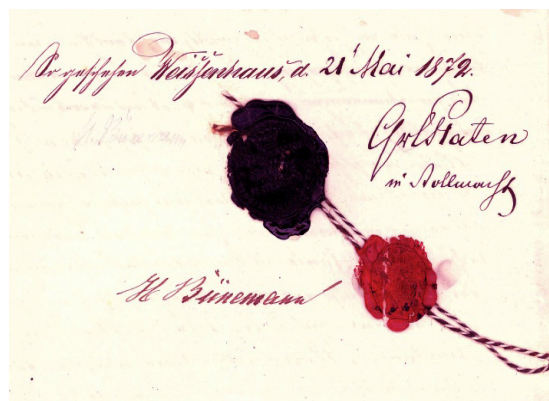 So geschehen Weissenhaus, d. 21' Mai 1872.
Platen
in Vollmacht
H Bünemann